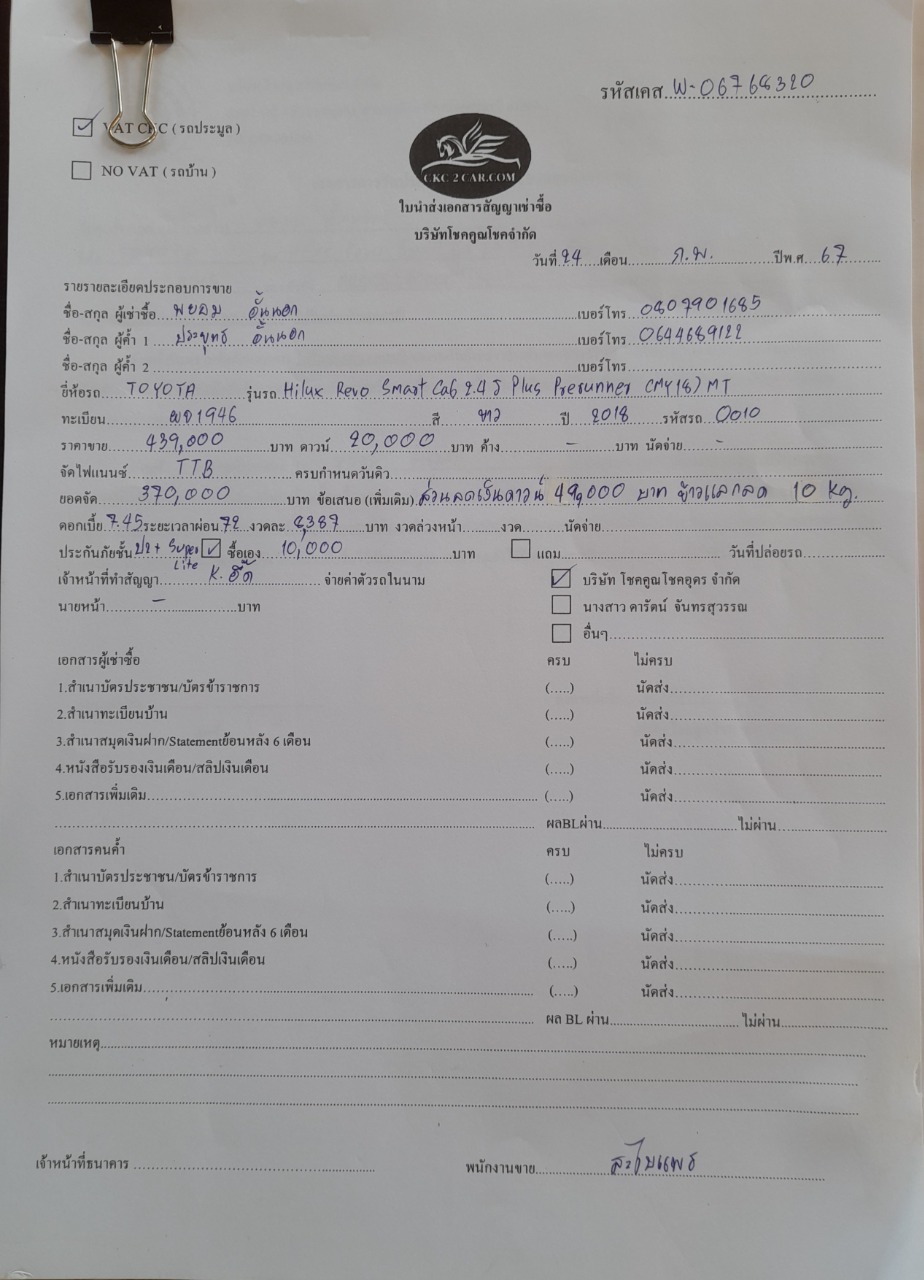 รหัสเคส W-06768320
☑ VAT CKC ( รถประมูล )
☐ NO VAT ( รถบ้าน )
CKC 2 CAR.COM
ใบนำส่งเอกสารสัญญาเช่าซื้อ
บริษัทโชคคูณโชคจำกัด
วันที่ 24 เดือน ก.พ. ปีพ.ศ 67
รายรายละเอียดประกอบการขาย
ชื่อ-สกุล ผู้เช่าซื้อ พยอม อั้นนอก เบอร์โทร 0807901685
ชื่อ-สกุล ผู้ค้ำ 1 ประยุทธ อั้นนอก เบอร์โทร 0644689122
ชื่อ-สกุล ผู้ค้ำ 2 เบอร์โทร
ยี่ห้อรถ TOYOTA รุ่นรถ Hilux Revo Smart Cab 2.4 J Plus Prerunner (MY18) MT
ทะเบียน 1946 สี ขาว ปี 2018 รหัสรถ 0010
ราคาขาย 439,000 บาท ดาวน์ 20,000 บาท ค้าง - บาท นัดจ่าย -
จัดไฟแนนซ์ TTB ครบกำหนดวันคิว
ยอดจัด 370,000 บาท ข้อเสนอ (เพิ่มเติม) ส่วนลดเงินดาวน์ 49,000 บาท ข้าวแลกลด 10 kg.
ดอกเบี้ย 7.45 ระยะเวลาผ่อน 72 งวดละ 8,389 บาท งวดล่วงหน้า งวด นัดจ่าย
ประกันภัยชั้น ป2+ Super Lite ☑ ซื้อเอง 10,000 บาท ☐ แถม วันที่ปล่อยรถ
เจ้าหน้าที่ทำสัญญา K. อี๊ด จ่ายค่าตัวรถในนาม ☑ บริษัท โชคคูณโชคอุดร จำกัด
นายหน้า - บาท ☐ นางสาว ดารัตน์ จันทรสุวรรณ
☐ อื่นๆ
เอกสารผู้เช่าซื้อ ครบ ไม่ครบ
1.สำเนาบัตรประชาชน/บัตรข้าราชการ (.....) นัดส่ง
2.สำเนาทะเบียนบ้าน (.....) นัดส่ง
3.สำเนาสมุดเงินฝาก/Statementย้อนหลัง 6 เดือน (.....) นัดส่ง
4.หนังสือรับรองเงินเดือน/สลิปเงินเดือน (.....) นัดส่ง
5.เอกสารเพิ่มเติม (.....) นัดส่ง
ผลBLผ่าน ไม่ผ่าน
เอกสารคนค้ำ ครบ ไม่ครบ
1.สำเนาบัตรประชาชน/บัตรข้าราชการ (.....) นัดส่ง
2.สำเนาทะเบียนบ้าน (.....) นัดส่ง
3.สำเนาสมุดเงินฝาก/Statementย้อนหลัง 6 เดือน (.....) นัดส่ง
4.หนังสือรับรองเงินเดือน/สลิปเงินเดือน (.....) นัดส่ง
5.เอกสารเพิ่มเติม (.....) นัดส่ง
ผล BL ผ่าน ไม่ผ่าน
หมายเหตุ
เจ้าหน้าที่ธนาคาร พนักงานขาย